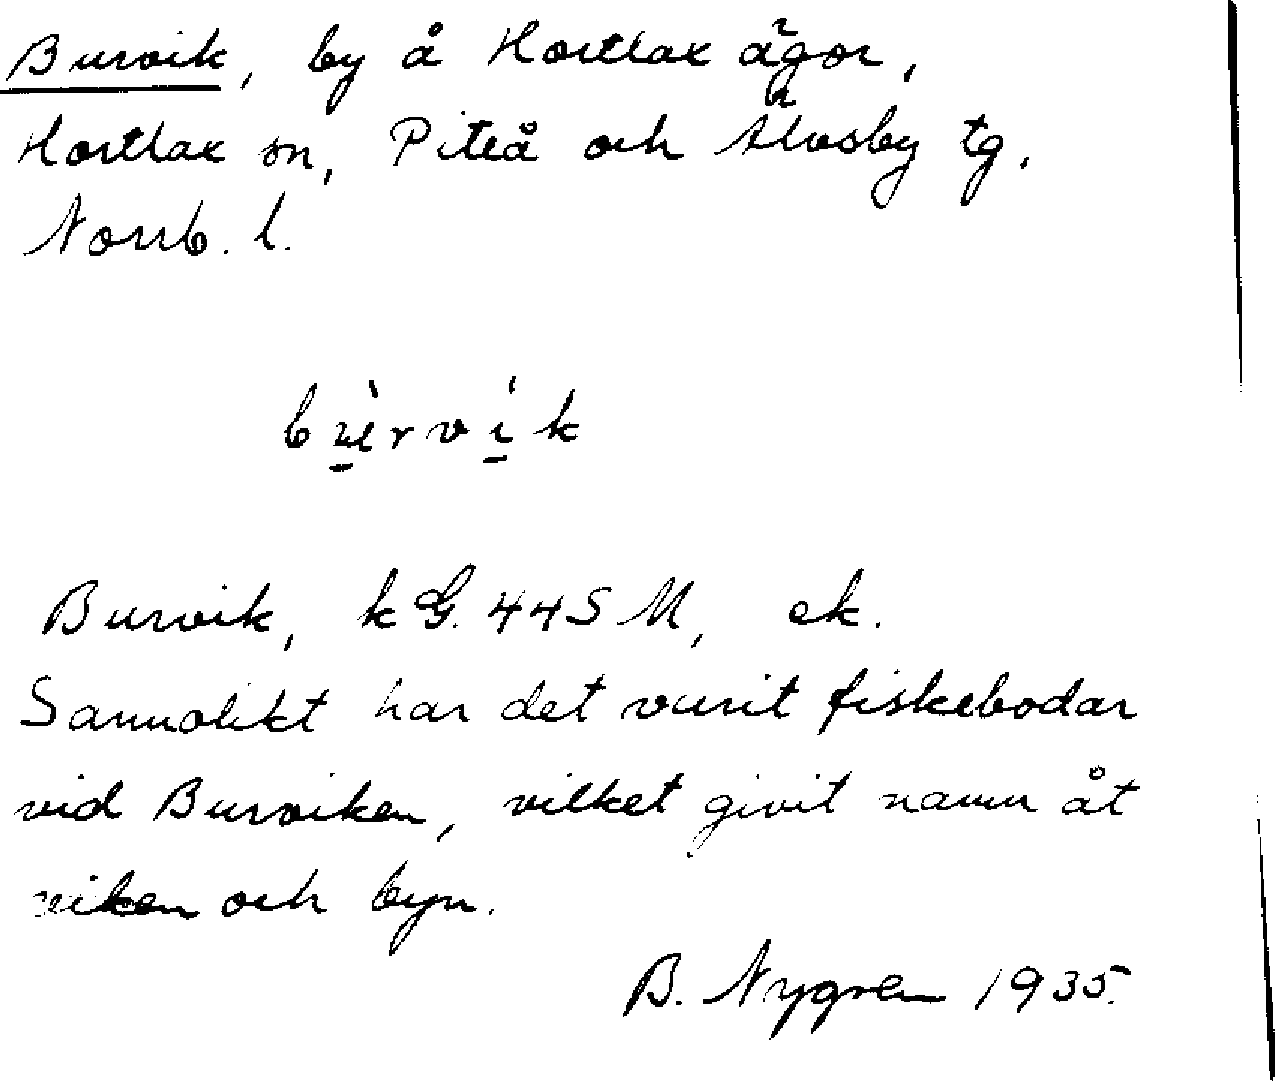 Burvik, by å Hortlax ägor,
Hortlax sn, Piteå och Älvsby tg,
Norrb. l.
bù̲rví̲k
Burvik, kG. 445 M, ek.
Sannolikt har det varit fiskebodar
vid Burviken, vilket givit namn åt
viken och byn.
B. Nygren 1935.